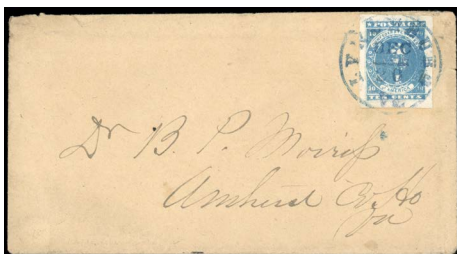 S POSTAGE
LYN
DEC
TEN CENTS
Dr B. P. Morriss
Amherst C. Ho
Va